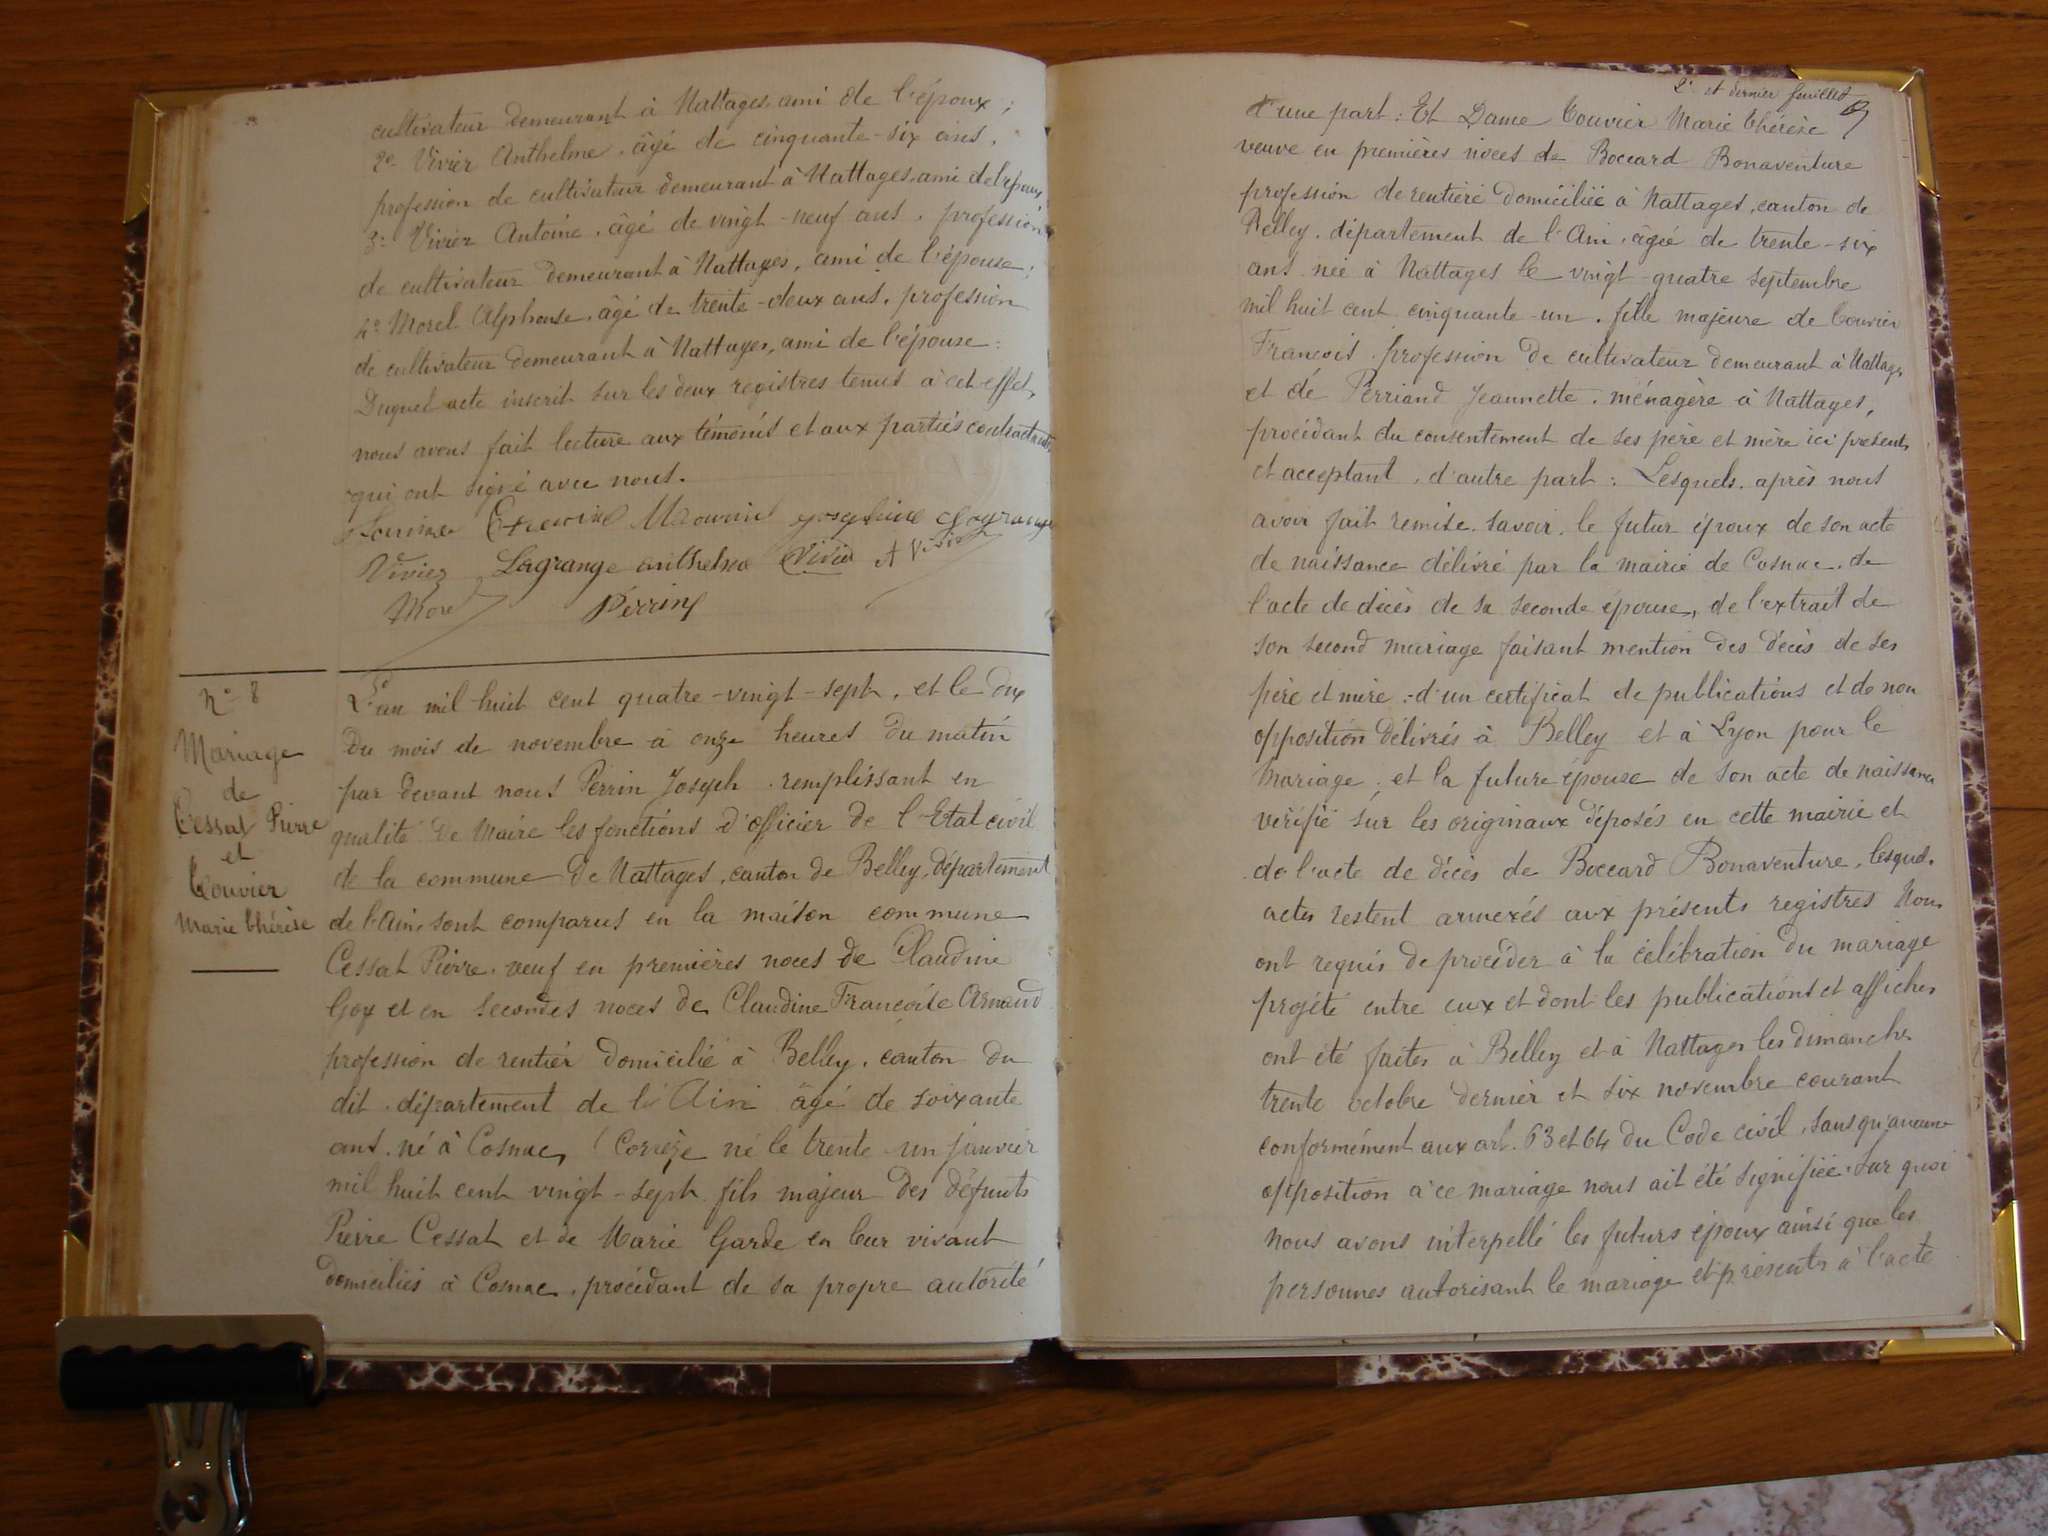 cultivateur demeurant à Nattages, ami de l'époux ;
2° Vivier Anthelme, âgé de cinquante-six ans,
profession de cultivateur demeurant à Nattages, ami de l'époux,
3° Vivier Antoine, âgé de vingt-neuf ans, profession
de cultivateur demeurant à Nattages, ami de l'épouse ;
4° Morel Alphonse, âgé de trente-deux ans, profession
de cultivateur demeurant à Nattages, ami de l'épouse :
Duquel acte inscrit sur les deux registres tenus à cet effet,
nous avons fait lecture aux témoins et aux parties contractantes
qui ont signé avec nous.
Josephine Lagrange
Vivier Lagrange anthelme Vivier A Vivier
Morel Perrin
N° 8
Mariage
de
Cessat Pierre
et
Couvier
Marie Thérèse
L'an mil huit cent quatre-vingt-sept, et le dix
du mois de novembre à onze heures du matin
par devant nous Perrin Joseph, remplissant en
qualité de Maire les fonctions d'officier de l'Etat civil
de la commune de Nattages, canton de Belley, département
de l'Ain, sont comparus en la maison commune
Cessat Pierre, veuf en premières noces de Claudine
Goy et en secondes noces de Claudine Françoise Arnaud
profession de rentier domicilié à Belley, canton du
dit, département de l'Ain âgé de soixante
ans, né à Cosnac, (Corrèze né le trente-un janvier
mil huit cent vingt-sept fils majeur des défunts
Pierre Cessat et de Marie Garde en leur vivant
domiciliés à Cosnac, procédant de sa propre autorité
2e et dernier feuillet
d'une part : Et Dame Couvier Marie Thérèse
veuve en premières noces de Boccard Bonaventure
profession de rentière domiciliée à Nattages, canton de
Belley, département de l'Ain, âgée de trente-six
ans née à Nattages le vingt-quatre septembre
mil huit cent cinquante-un, fille majeure de Couvier
François, profession de cultivateur demeurant à Nattages
et de Perriand Jeannette, ménagère à Nattages,
procédant du consentement de ses père et mère ici présents
et acceptant, d'autre part : Lesquels, après nous
avoir fait remise, savoir, le futur époux de son acte
de naissance délivré par la mairie de Cosnac, de
l'acte de décès de sa seconde épouse, de l'extrait de
son second mariage faisant mention des décès de ses
père et mère ; d'un certificat de publications et de non
opposition délivrés à Belley et à Lyon pour le
mariage ; et la future épouse de son acte de naissance
vérifié sur les originaux déposés en cette mairie et
de l'acte de décès de Boccard Bonaventure, lesquels
actes restent annexés aux présents registres Nous
ont requis de procéder à la célébration du mariage
projeté entre eux et dont les publications et affiches
ont été faites à Belley et à Nattages les dimanches
trente octobre dernier et six novembre courant
conformément aux art. 63 et 64 du Code civil, sans qu'aucune
opposition à ce mariage nous ait été signifiée. Sur quoi
nous avons interpellé les futurs époux ainsi que les
personnes autorisant le mariage et présents à l'acte